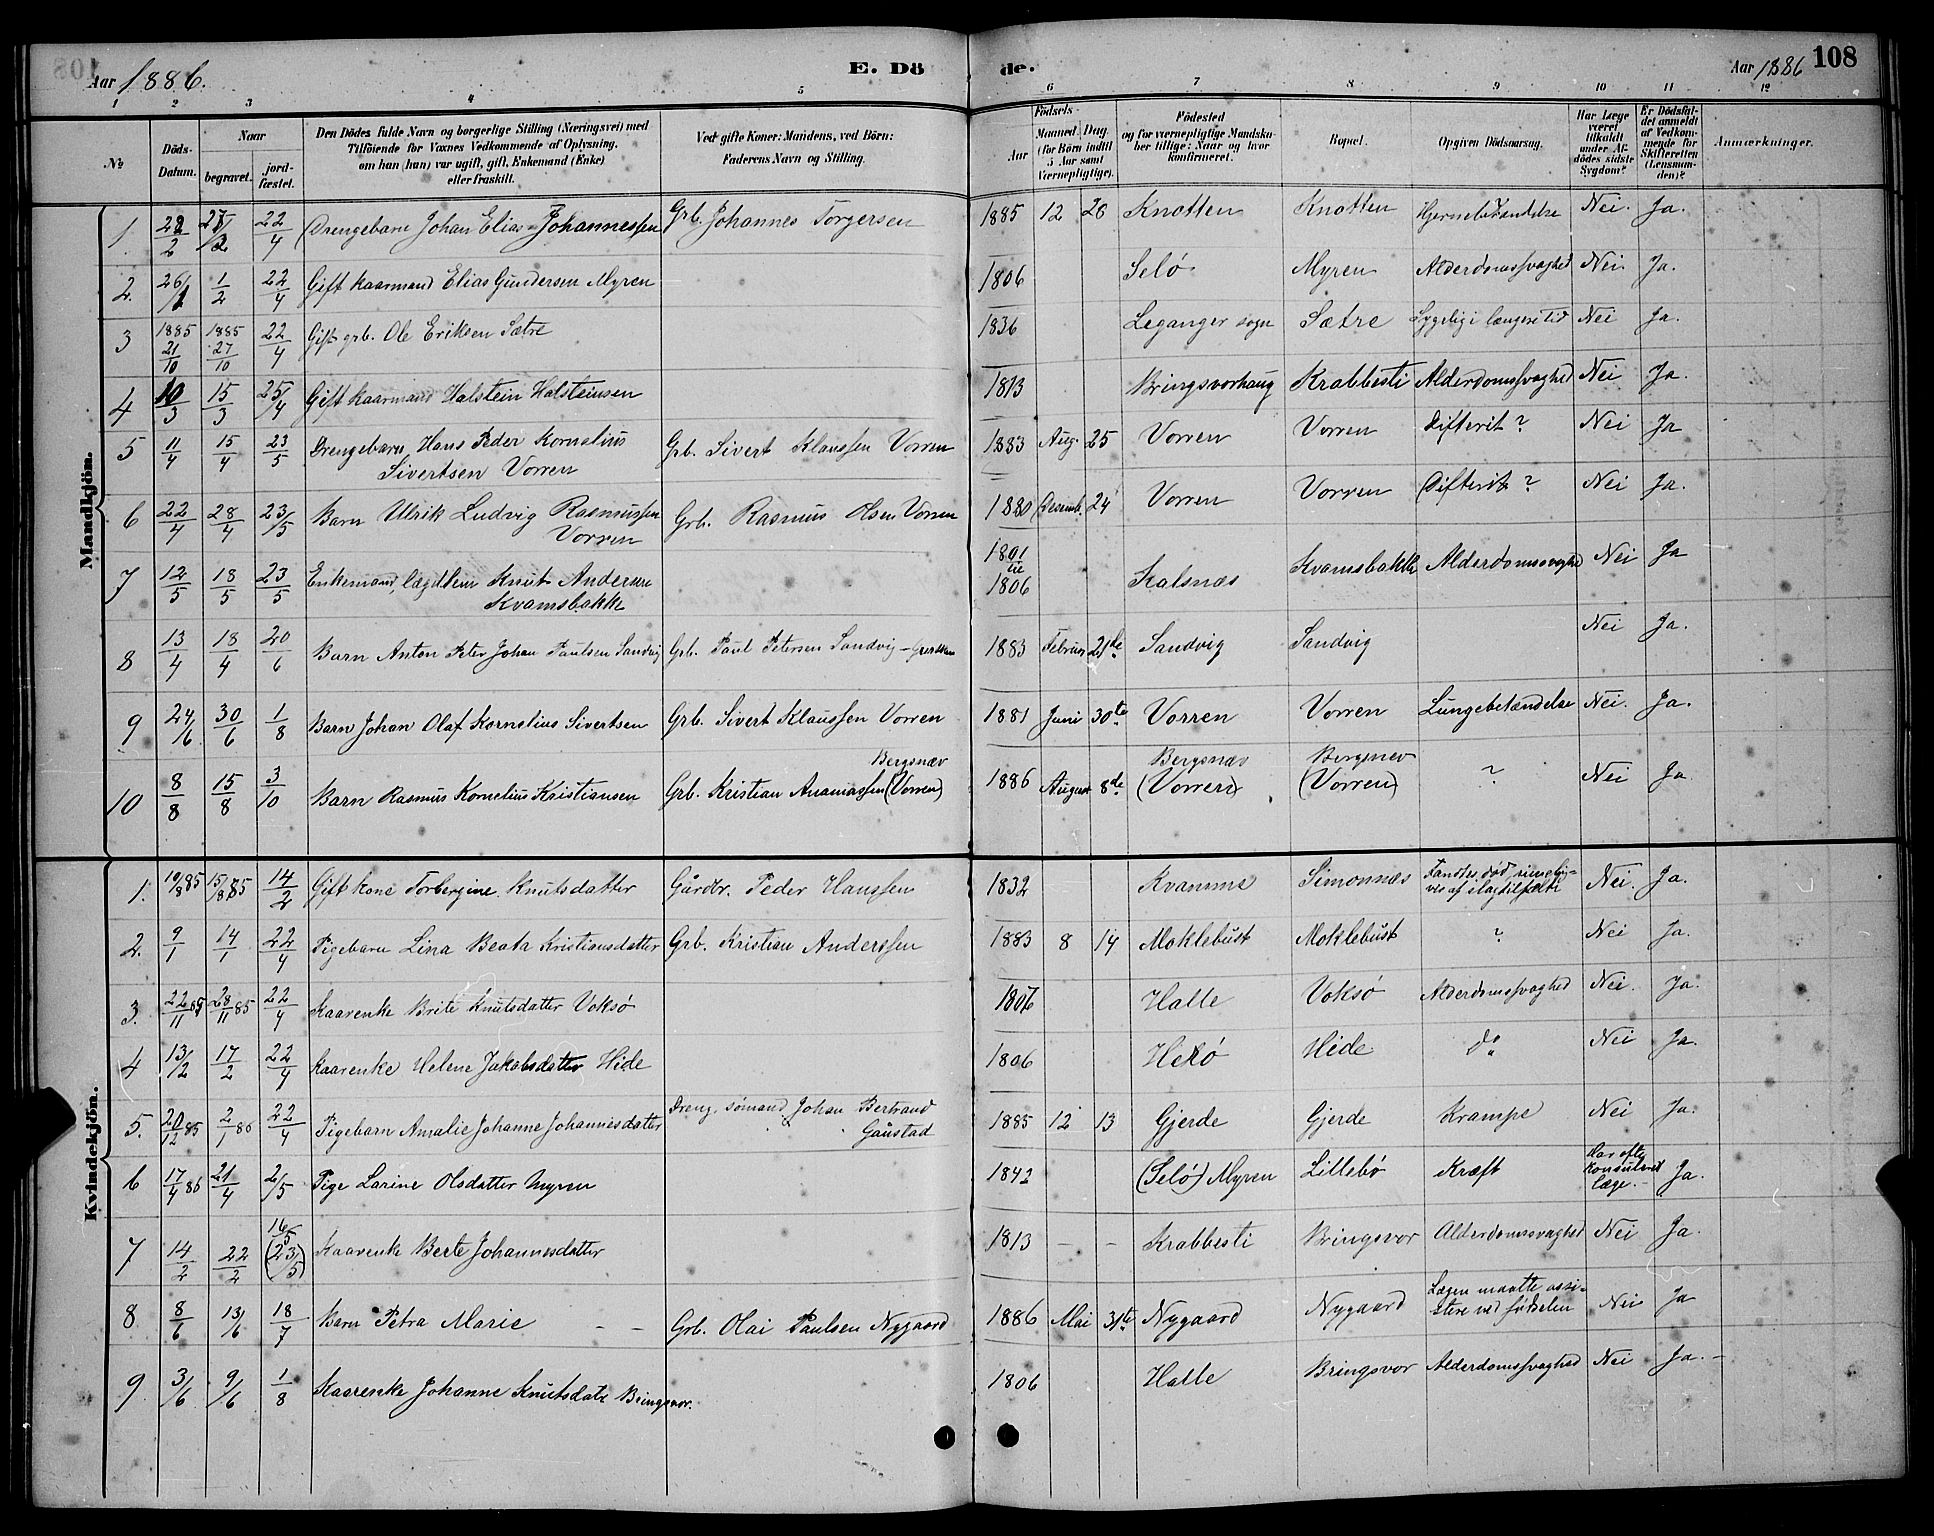 Aar 1886. E. Dö de. Aar 1886 108
1 2 3 4 5 6 7 8 9 10 11 12
No
Döds-Datum.
Naar
begravet.
jord-fæstet.
Den Dödes fulde Navn og borgerlige Stilling (Næringsvei) med
Tilföiende for Voxnes Vedkommende af Oplysning,
om han (hun) var ugift, gift, Enkemand (Enke)
eller fraskilt.
Ved gifte Koner: Mandens, ved Börn:
Faderens Navn og Stilling.
Födsels-
Aar
Maaned Dag.
(for Börn indtil
5 Aar samt
Værnepligtige).
Födested
og for værnepligtige Mandska-
ber tillige: Naar og hvor
konfirmeret.
Bopæl.
Opgiven Dödsaarsag.
Har Læge
været
tilkaldt
under Af-
dödes sidste
Sygdom?
Er Dödsfal-
det anmeldt
af Vedkom-
mende for
Skifteretten
(Lensman-
den)?
Anmærkninger.
Mandkjön.
1 22/2 27/2 22/4 Drengebarn Johan Elias Johannessen Grb. Johannes Torgersen 1885 12 26 Knotten Knotten Hjernebetændelse Nei. Ja.
2. 26/1 1/2 22/4 Gift Kaarmand Elias Gundersen Myren 1806 Selö Myren Alderdomssvaghed Nei. Ja.
3 1885 21/10 1885 27/10 22/4 Gift grb. Ole Eriksen Sætre 1836 Leganger sogn Sætre Sygelig i længere tid Nei Ja.
4 10/3 15/3 25/4 Gift Kaarmand Halstein Halsteinsen 1813 Bringsvorhaug Krabbesti Alderdomssvaghed Nei Ja.
5 11/4 15/4 23/5 Drengebarn Hans Peder Kornelius
Sivertsen Vorren Grb. Sivert Klaussen Vorren 1883 Aug. 25 Vorren Vorren Difterit? Nei Ja
6 22/4 28/4 23/5 Barn Ulrik Ludvig Rasmussen
Vorren Grb. Rasmus Olsen Vorren 1880 Desemb. 24 Vorren Vorren Difterit? Nei Ja.
7 12/5 18/5 23/5 Enkemand, lægdslem Knut Andersen
Kvamsbakke 1801 til 1806 Kalsnæs Kvamsbakke Alderdomssvaghed Nei Ja
8 13/4 18/4 20/6 Barn Anton Peter Johan Paulsen Sandvig Grb. Paul Petersen Sandvig 1883 Februar 21de Sandvig Sandvig Nei Ja.
9 24/6 30/6 1/8 Barn Johan Olaf Kornelius Sivertsen Grb. Sivert Klaussen Vorren 1881 Juni 30te Vorren Vorren Lungebetændelse Nei. Ja.
10 8/8 15/8 3/10 Barn Rasmus Kornelius Kristiansen Grb. Kristian Ananiassen Bergsnæv (Vorren) 1886 August 8de Bergsnæv (Vorren) Bergsnev (Vorren) ? Nei Ja.
Kvindekjön.
1. 10/8 85 15/8 85 14/2 Gift kone Torbergine Knutsdatter Gårdbr. Peder Hanssen 1832 Kvamme Simonnæs Fandtes död rimelig-
vis af slagtilfælde Nei. Ja.
2. 9/1 14/1 22/4 Pigebarn Lina Beate Kristiansdatter Grb. Kristian Anderssen 1883 8 14 Moklebust Moklebust ? Nei Ja.
3. 22/11 85 28/11 85 22/4 Kaarenke Brite Knutsdatter Voksö 1806 Halle Voksö Alderdomssvaghed Nei. Ja.
4 13/2 17/2 22/4 Kaarenke Helene Jakobsdatter Hide 1806 Herö Hide do Nei Ja.
5. 20/12 85 2/1 86 22/4 Pigebarn Amalie Johanne Johannesdatter Dreng, sömand Johan Bertrand
Gåustad 1885 12 13 Gjerde Gjerde Krampe Nei Ja.
6 17/4 86 21/4 2/5 Pige Larine Olsdatter Myren 1842 (Selö) Myren Lillebö Kræft Har ofte
konsuleret
læge.- Ja.
7 14/2 22/2 16/5 (23/5) Kaarenke Berte Johannesdatter 1813 - - Krabbesti Bringsvor Alderdomssvaghed Nei Ja.
8 8/6 13/6 18/7 Barn Petra Marie - - Grb. Olai Paulsen Nygaard 1886 Mai 31te Nygaard Nygaard Lægen maatte assi-
stere ved födselen Nei Ja
9 3/6 9/6 1/8 Kaarenke Johanne Knutsdatr Bringsvor. 1806 Halle Bringsvor Alderdomssvaghed Nei Ja. -